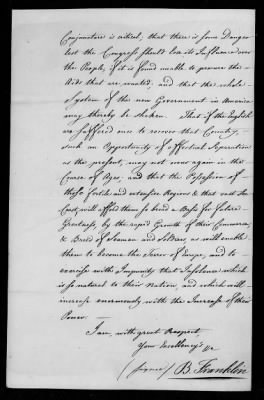 Conjuncture is critical, that there is some Danger
lest the Congress should lose its Influence over
the People, if it is found unable to procure the
Aids that are wanted, and that the whole
System of the new Government in America
may thereby be shaken. That if the English
are suffered once to recover that Country,
such an Opportunity of effectual Separation
as the present, may not occur again in the
Course of Ages; and that the Possession of
those fertile and extensive Regions & that vast Sea
Coast, will afford them so broad a Basis for future
Greatness, by the rapid Growth of their Commerce,
& Breed of Seamen and Soldiers, as will enable
them to become the Terror of Europe, and to
exercise with Impunity that Insolence which
is so natural to their Nation, and which will
increase enormously with the Increase of their
Power.
I am, with great Respect
Your Excellency's &c
(signed) B. Franklin